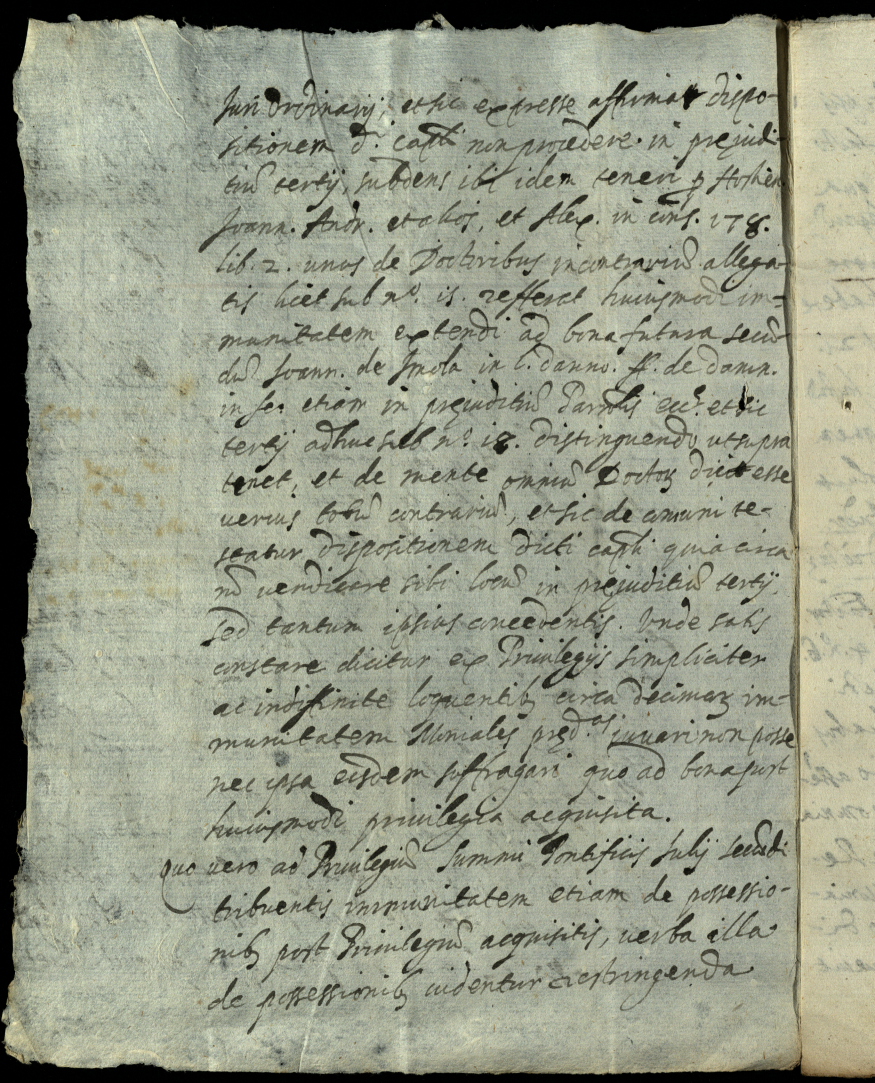 Juri ordinarij, et sic expresse affirmat dispo-
sitionem d.i capli non procedere in prejudi-
tiũ tertij, subdens ibi idem teneri p Hostien
Joann. Andr. et alios, et Alex. in cons. 178.
lib. 2. unus de Doctoribus in contrariũ allega-
tis licet sub n.o 15. refferat huiusmodi im=
munitatem extendi ad bona futura secũ-
dũ Joann. de Imola in l. damno. ff. de damn.
inf.o etiam in prejuditiũ et sic
tertij adhuc sub n.o 18. distinguendo ut supra
tenet, et de mente omniũ Doctoꝝ dicit esse
verius totũ contrariũ, et sic de comuni te-
statur dispositionem dicti capli quia circa
nõ vendicare sibi locũ in prejuditiũ tertij,
sed tantum ipsius concedentis. Unde satis
constare dicitur ex Privilegijs simpliciter
ac indiffinite loquentibꝫ circa decimaꝝ im-
munitatem Moniales pred.as iuvari non posse
nec ipsa eisdem suffragari quo ad bona post
huiusmodi privilegia acquisita.
Quo vero ad Privilegiũ Summi Pontificis Julij secũdi
tribuentis immunitatem etiam de possessio-
nibꝫ post Privilegiũ acquisitis, verba illa
de possessionibꝫ videntur restringenda